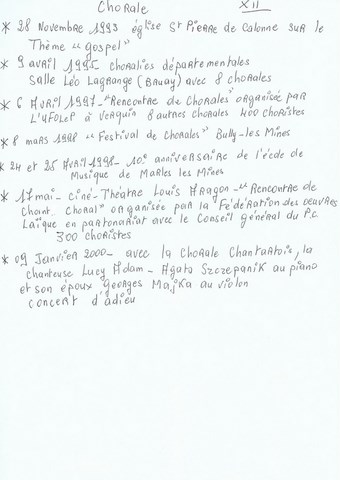 Chorale XII
* 28 Novembre 1993 église St Pierre de Calonne sur le
Thème "Gospel"
* 9 avril 1995 - Choralies départementales
Salle Léo Lagrange (Bruay) avec 8 chorales
* 6 Avril 1997 - "Rencontre du Chorales" organisée par
L'UFOLEP à Verquin 8 autres chorales 400 choristes
* 8 mars 1998 "Festival de Chorales" Bully-les Mines
* 24 et 25 Avril 1998 - 10e anniversaire de l'école de
Musique de Marles les Mines
* 17 mai - ciné-Théatre Louis Aragon - "Rencontre de
chant choral" organisée par la Fédération des oeuvres
Laïque en partenariat avec le Conseil général du P.C
300 choristes
* 09 Janvier 2000 - avec la chorale Chantartois, la
chanteuse Lucy Adam - Agata Szczepanik au piano
et son époux Georges Majka au violon
concert d'adieu